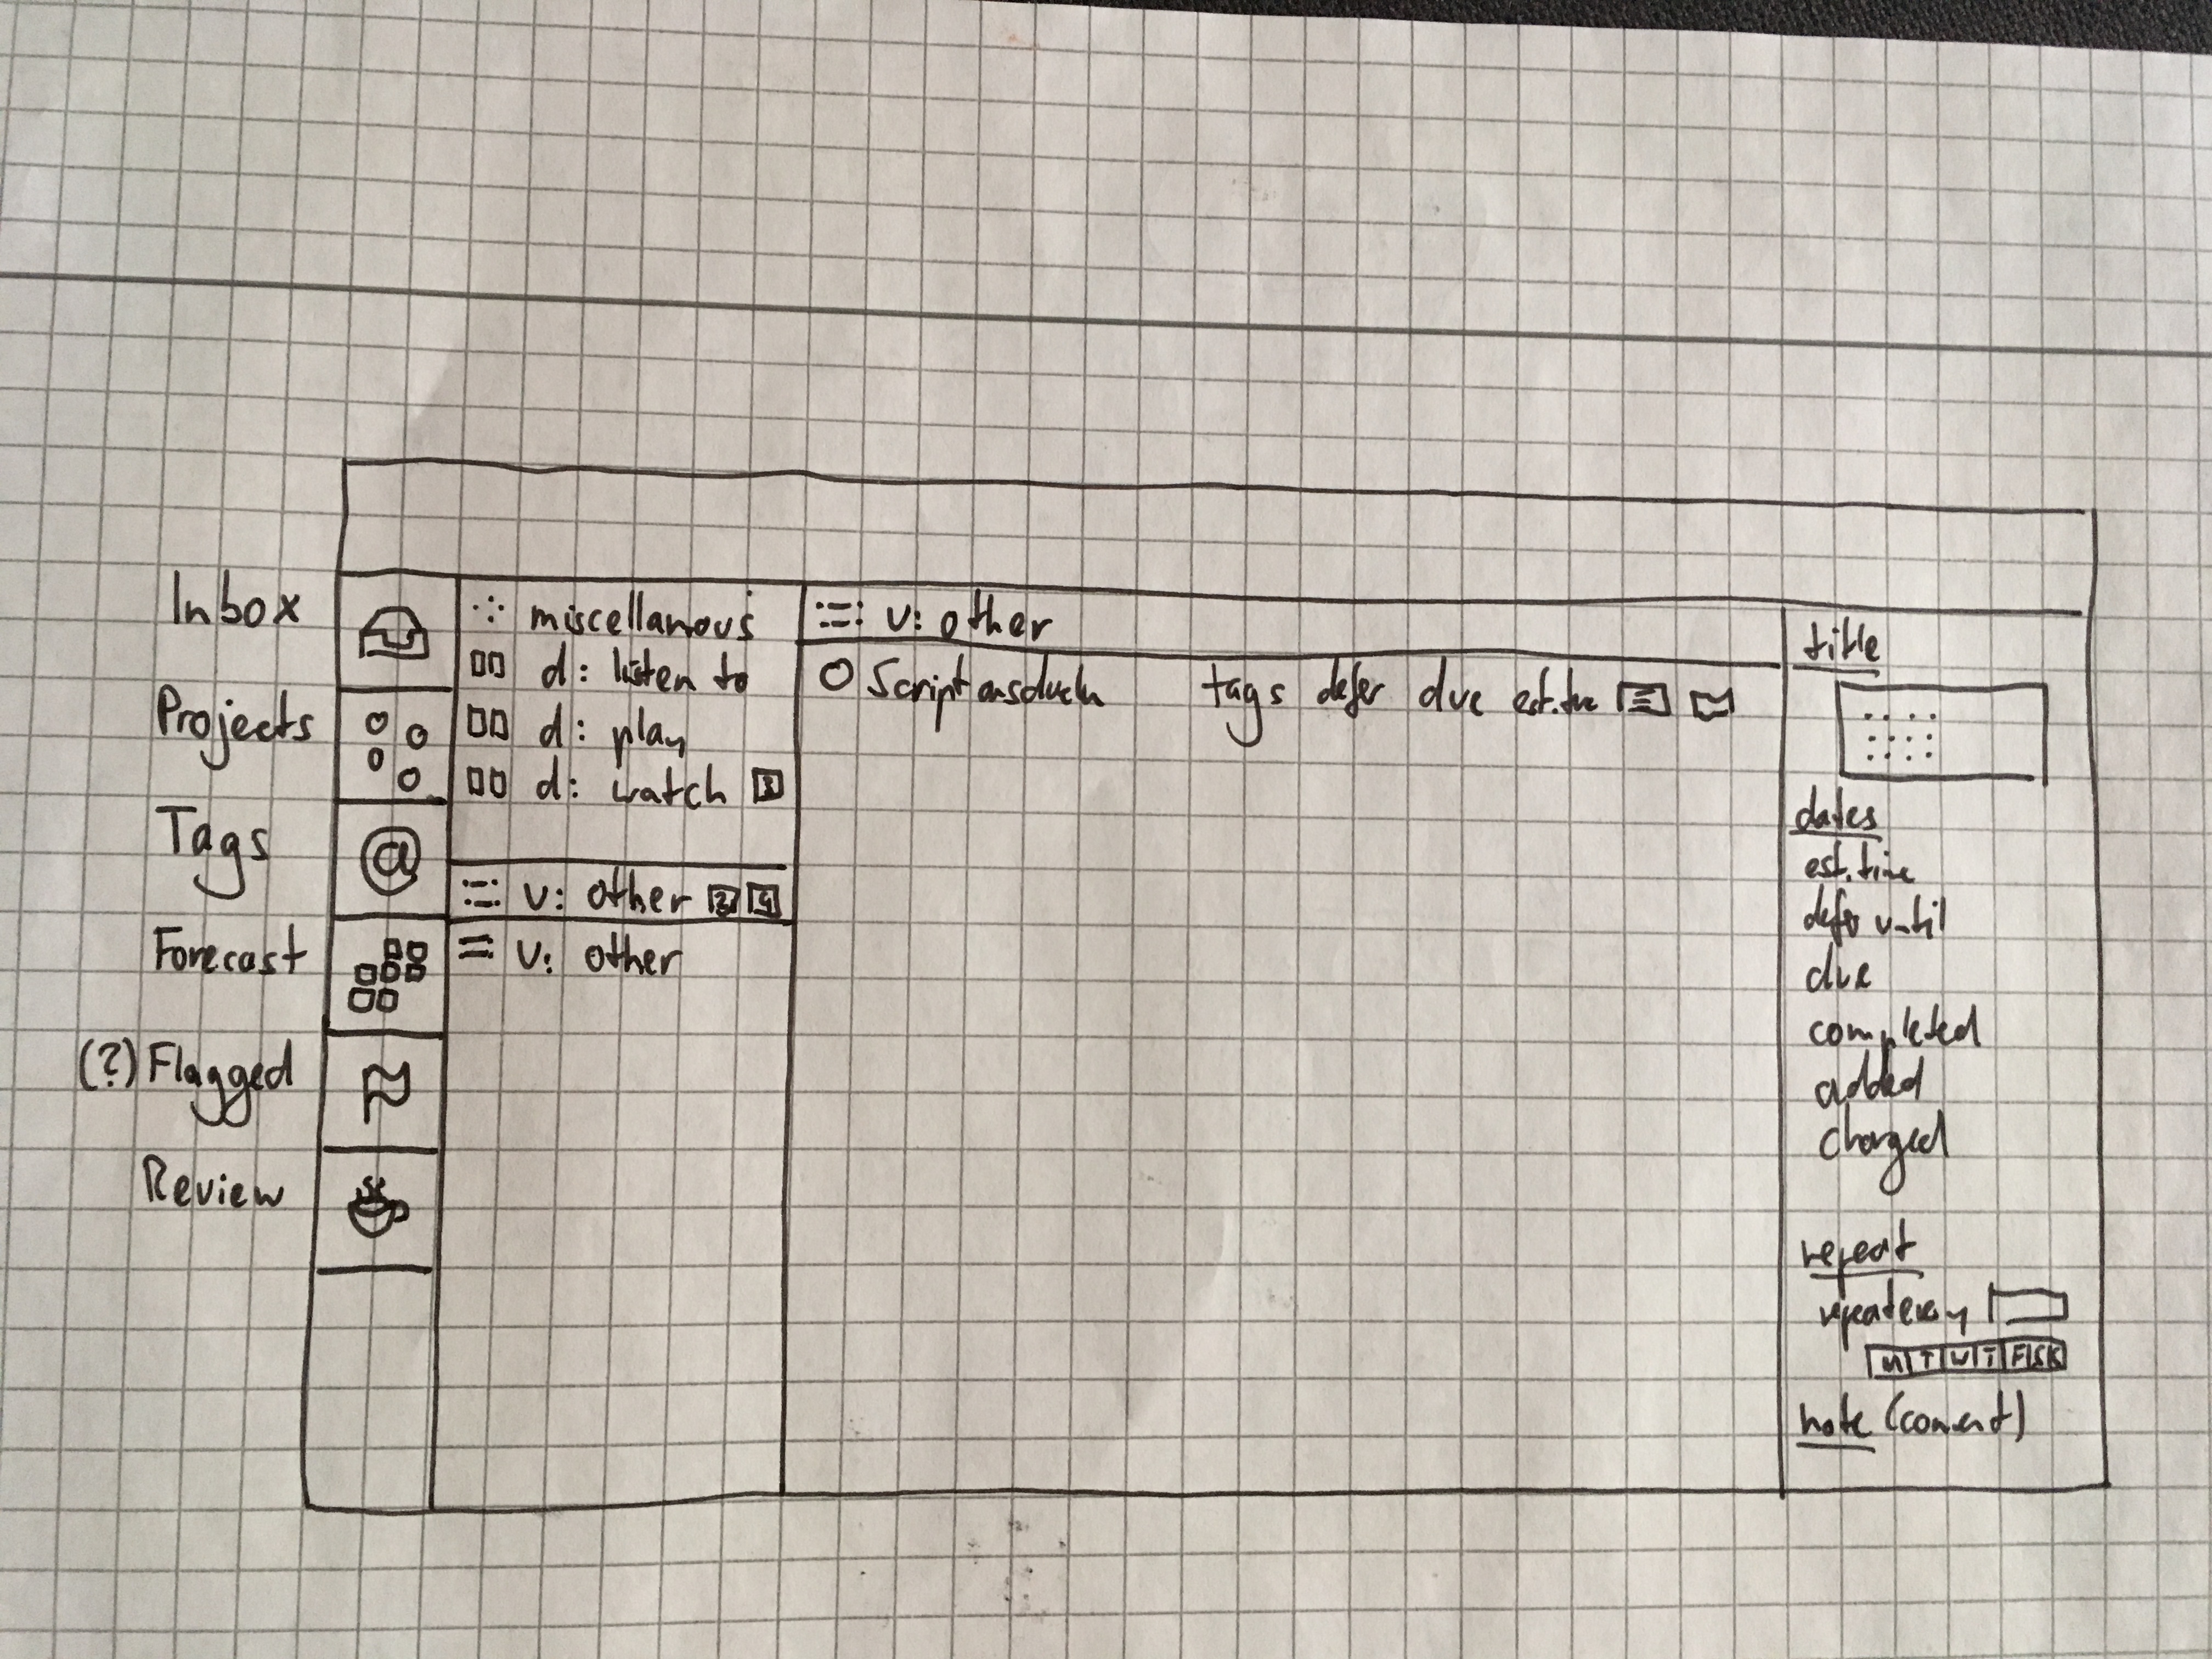 Inbox
Projects
Tags
Forecast
(?) Flagged
Review
@
miscellanous
d: listen to
d: play
d: watch
v: other
v: other
v: other
Script tags defer due est.
title
dates
est. time
defer until
due
completed
added
changed
repeat
repeat every
M T W T F S S
note (coment)